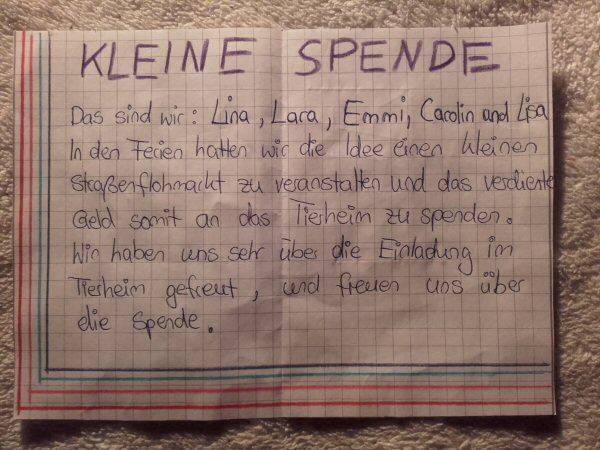 KLEINE SPENDE
Das sind wir: Lina, Lara, Emmi, Carolin und Lisa
In den Ferien hatten wir die Idee einen kleinen
Straßenflohmarkt zu veranstalten und das verdiente
Geld somit an das Tierheim zu spenden.
Wir haben uns sehr über die Einladung im
Tierheim gefreut, und freuen uns über
die Spende.